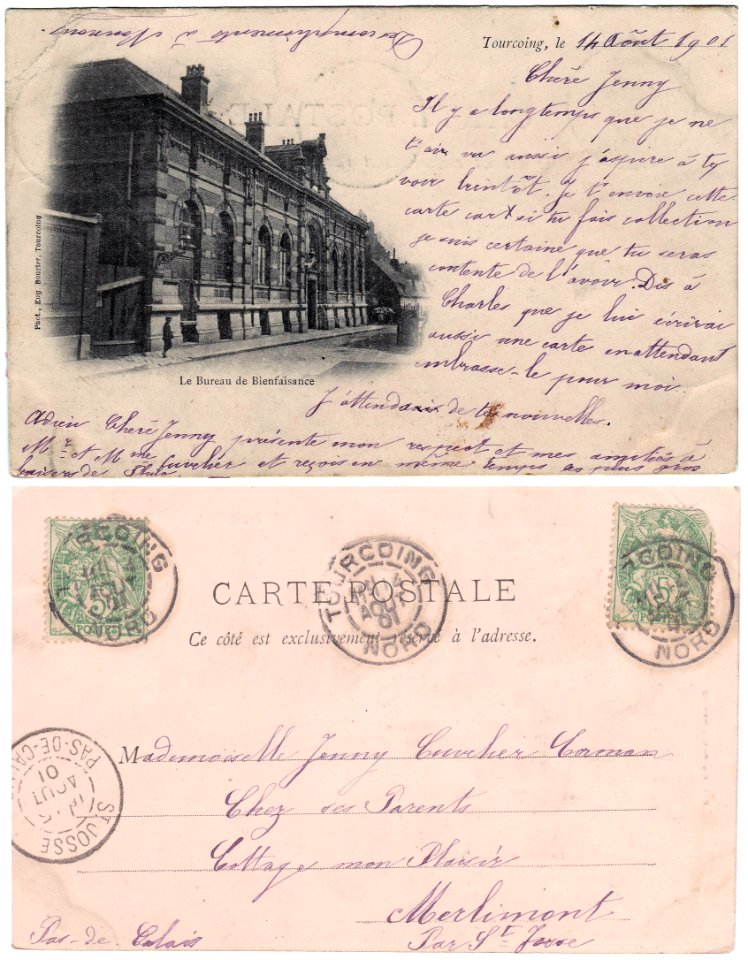 Des compliments à
Tourcoing, le 14 Août 1901
Cheré Jenny
Il y a longtemps que je ne
t'ai vu aussi j'aspire à te
voir bientôt. Je t'envoie cette
carte car si tu fais collection
je suis certaine que tu seras
contente de l'avoir. Dis à
Charles que je lui écrirai
aussi une carte en attendant
embrasse-le pour moi.
J'attends de tes nouvelles.
Adieu Cheré Jenny présente mon respect et mes amitiés à
Mr et Mme Cuvelier et reçois en même temps les plus gros
baisers de
Phot., Eug. Bourier, Tourcoing
Le Bureau de Bienfaisance
TOURCOING
AOUT
01
NORD
CARTE POSTALE
Ce côté est exclusivement réservé à l'adresse.
Mademoiselle Jenny Cuvelier Corman
Chez ses Parents
Cottage mon Plaisir
Merlimont
Par St Josse
Pas-de-Calais
ST JOSSE
AOUT
01
PAS-DE-CALAIS